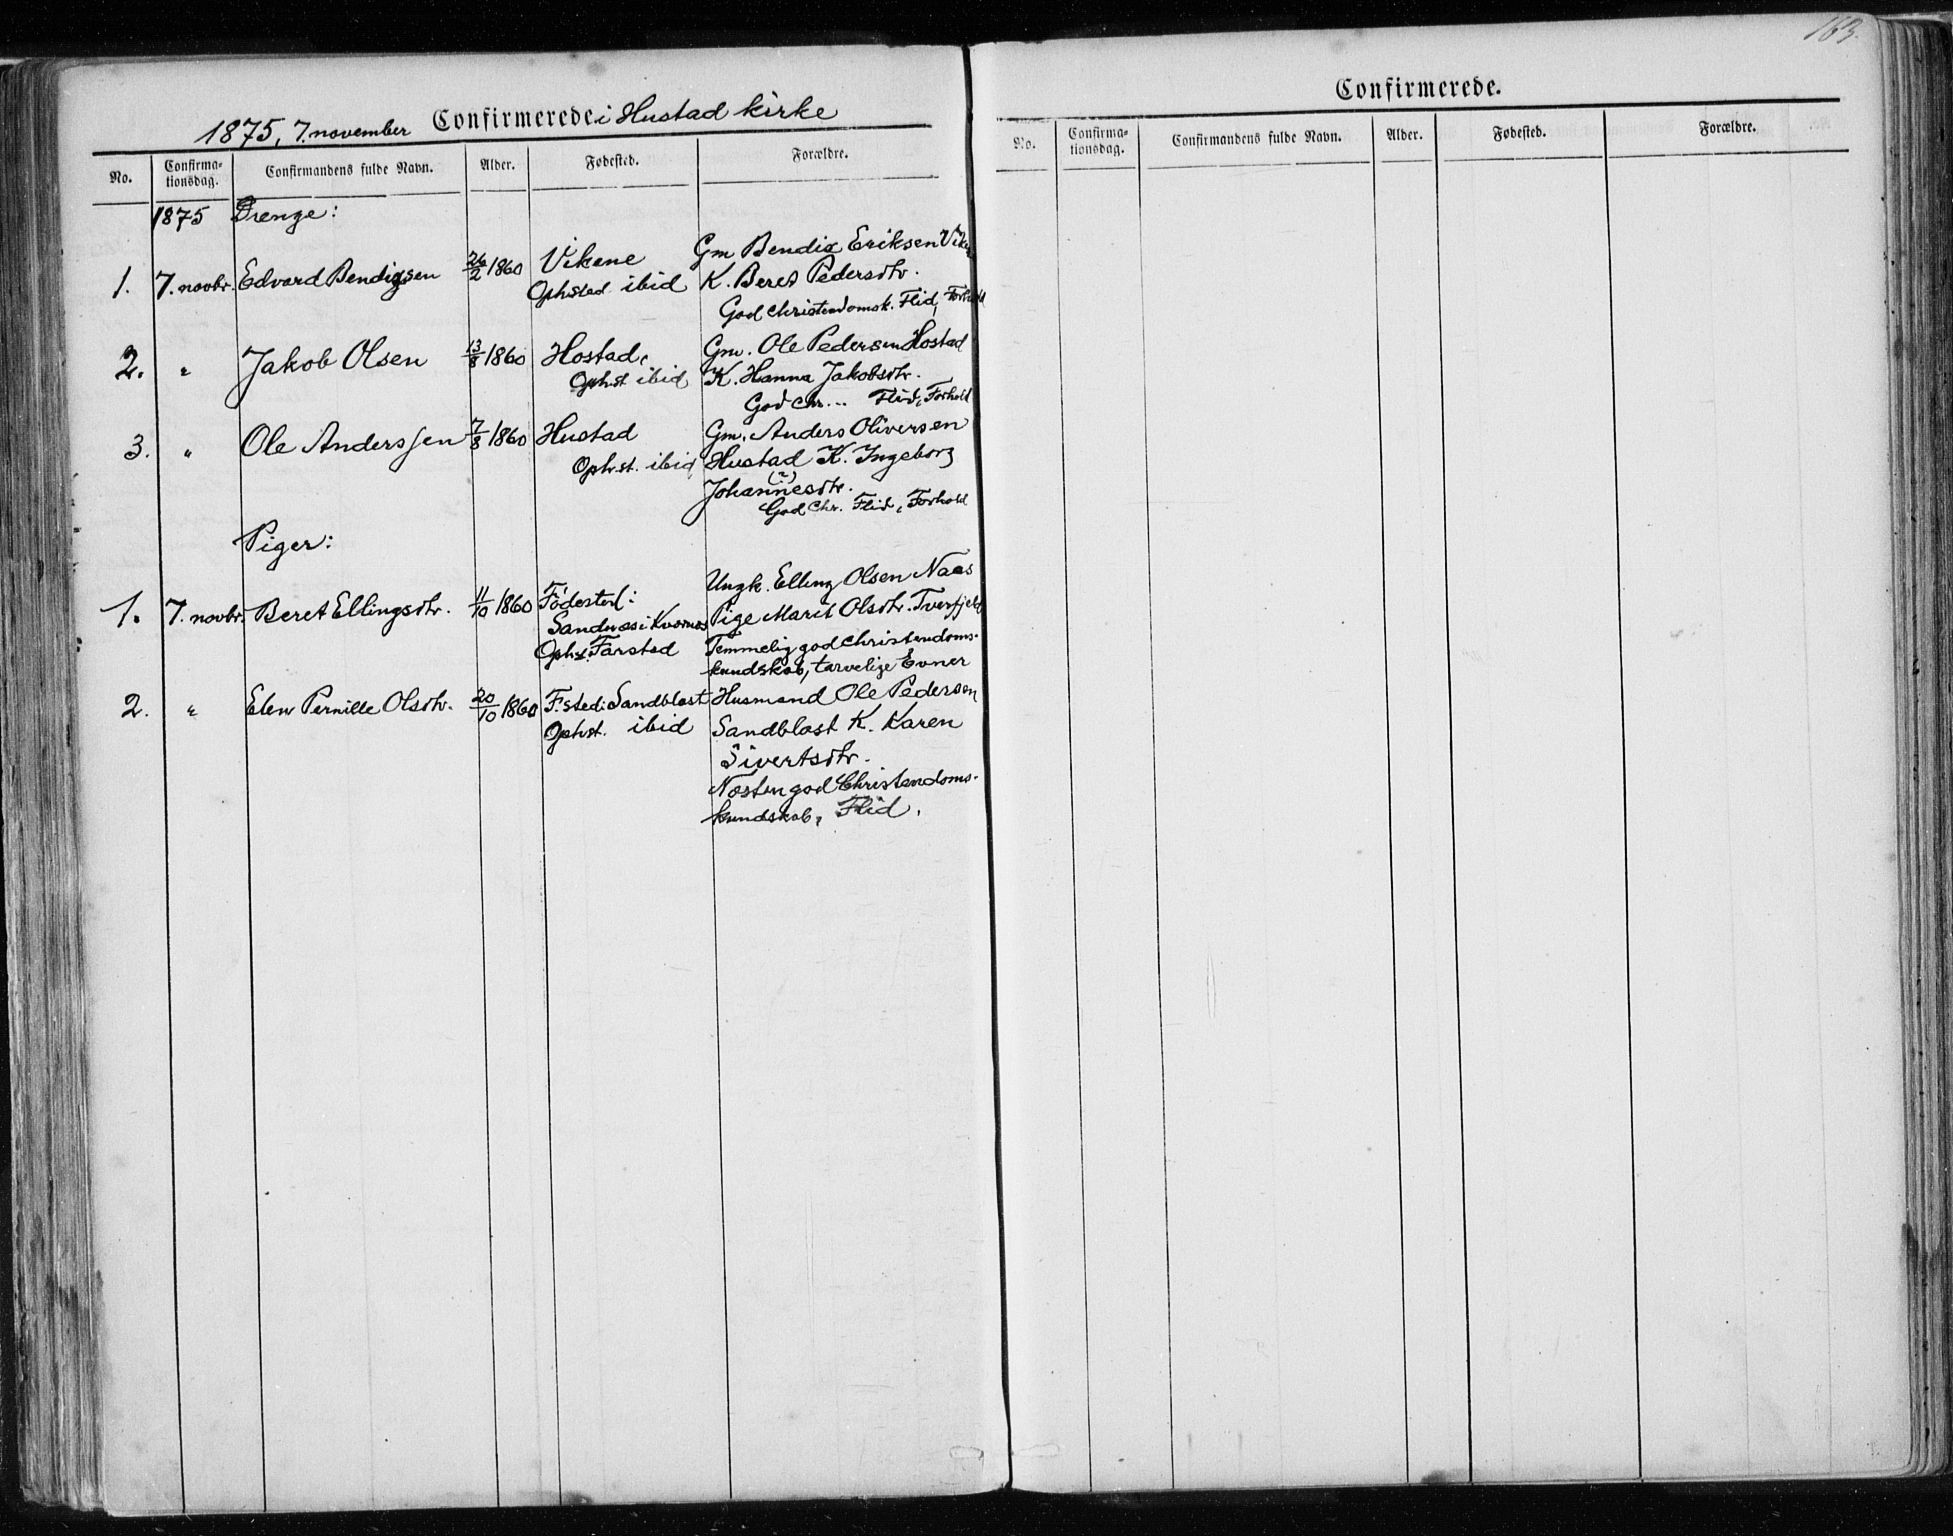 1875, 7. november Confirmerede i Hustad kirke
No. Confirma-tionsdag. Confirmandens fulde Navn. Alder. Fødested. Forældre.
1875 Drenge:
1. 7. novbr. Edvard Bendigsen 26/2 1860 Vikene Gm Bendix Eriksen
Ophsted ibid K. Beret Pedersdtr.
God christendomsk. Flid, Forhold
2. " Jakob Olsen 13/8 1860 Hostad, Gm. Ole Pedersen Hostad
Ophst ibid K. Hanna Jakobsdtr.
God Chr... Flid, Forhold
3. " Ole Anderssen 7/8 1860 Hustad Gm. Anders Oliversen
Ophst. ibid Hustad K. Ingeborg
Johannesdtr.
God Chr. Flid, Forhold
Piger:
Ungk. Elling Olsen Naas
1. 7. novbr. Beret Ellingsdtr. 11/10 1860 Födested: Pige Marit Olsdtr. Tverfjeld
Sandnes i Kvornes
Ophst. Farstad Temmelig god christendoms-
kundskab, tarvelige Evner
2. " Elen Pernille Olsdtr. 20/10 1860 F.sted: Sandblast Husmand Ole Pedersen
Ophst. ibid Sandblast K. Karen
Sivertsdtr.
Næsten god Christendoms-
kundskab, Flid.
163.
Confirmerede.
No. Confirma-tionsdag. Confirmandens fulde Navn. Alder. Fødested. Forældre.